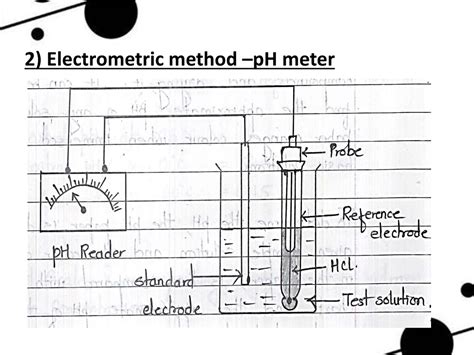 2) Electrometric method –pH meter
Probe
Reference
electrode
pH Reader
Hcl.
standard
electrode
Test solution.